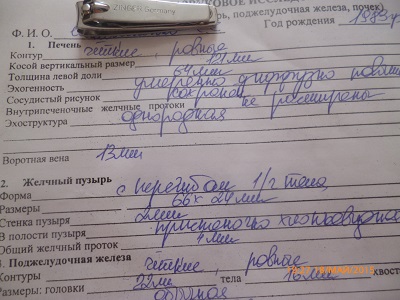 ZINGER Germany
ОВОЕ ИССЛЕ
рь, поджелудочная железа, почек)
Ф. И. О.
Год рождения 1983 г
1. Печень
Контур четкие, ровные
Косой вертикальный размер 121 мм
Толщина левой доли 64 мм
Эхогенность умеренно диффузно повыш
Сосудистый рисунок сохранен
Внутрипеченочные желчные протоки не расширены
Эхоструктура однородная
Воротная вена 13 мм
2. Желчный пузырь
Форма с перегибом 1/2 тела
Размеры 66 х 24 мм
Стенка пузыря 2 мм
В полости пузыря пристеночно
Общий желчный проток 4 мм
3. Поджелудочная железа
Контуры четкие, ровные
Размеры: головки 22 мм тела 16 мм хвост